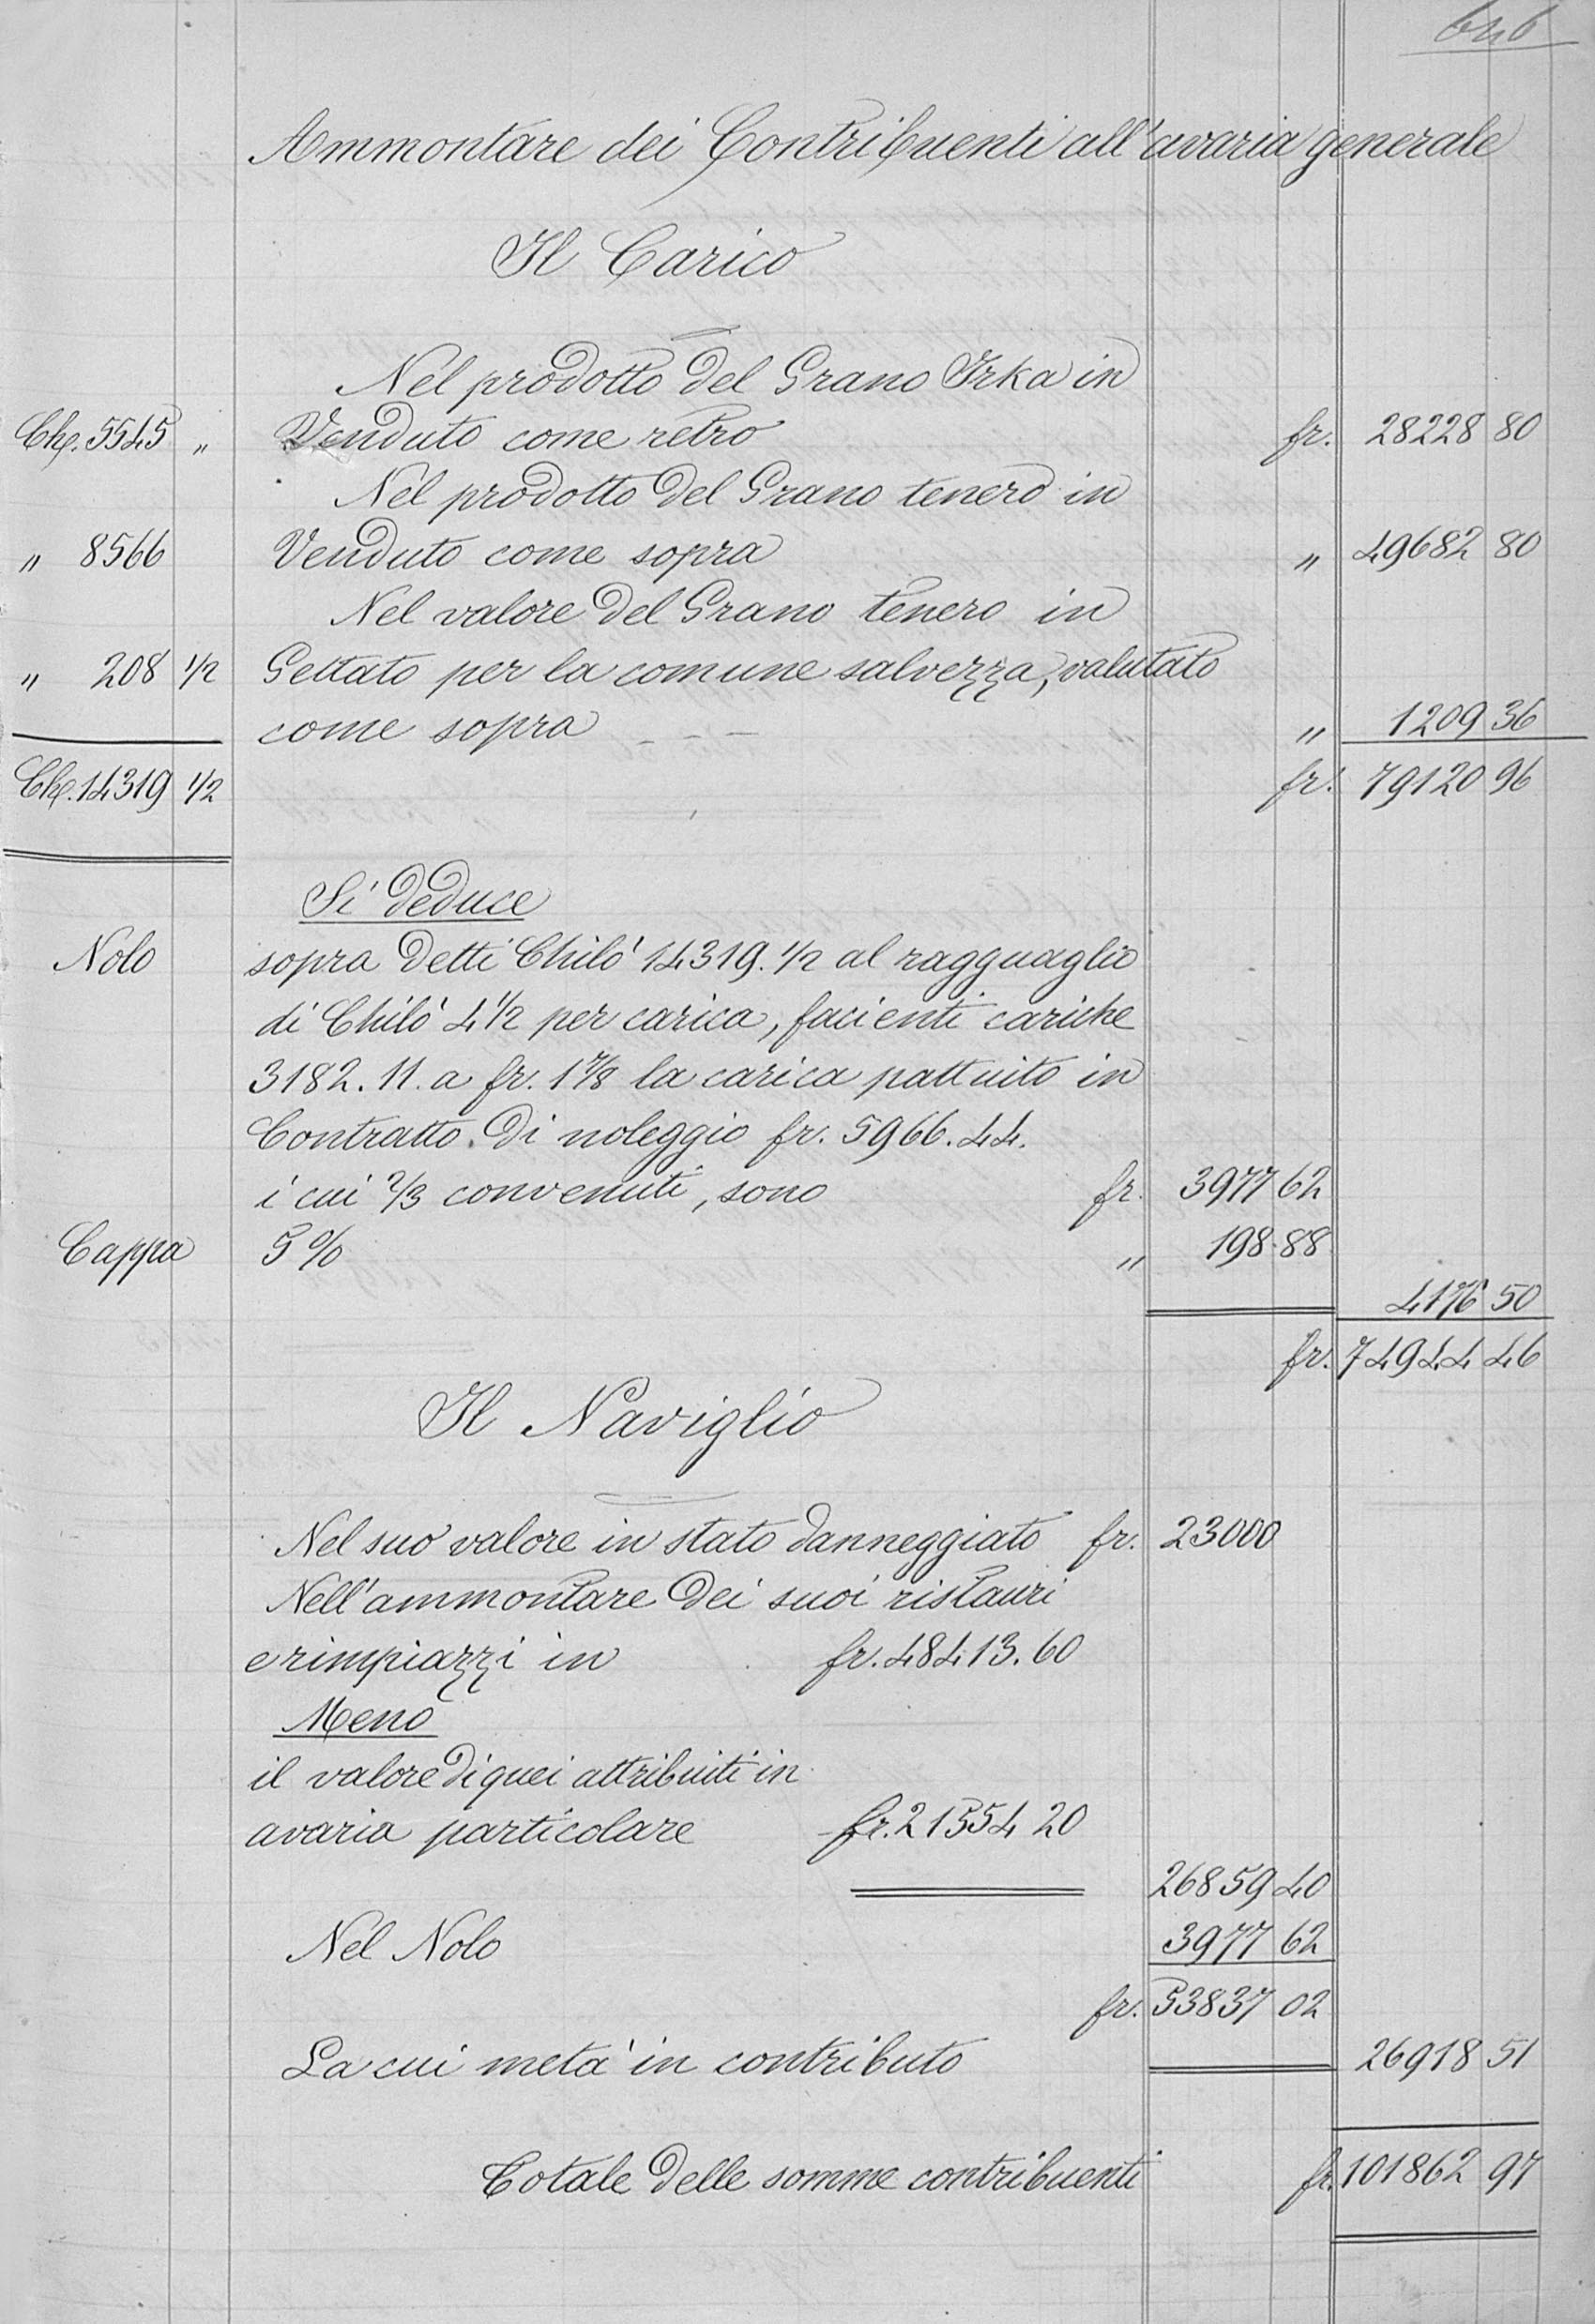 646
Ammontare dei Contribuenti all'avaria generale
Il Carico
Nel prodotto del Grano Irka in
Chº. 5545 „ Venduto come retro fr. 28228 80
Nel prodotto del Grano tenero in
„ 8566 Venduto come sopra „ 49682 80
Nel valore del Grano tenero in
„ 208 1/2 Gettato per la comune salvezza, valutato
come sopra - - - „ 1209 36
Chº. 14319 1/2 fr. 79120 96
Si deduce
Nolo sopra detti Chilò 14319. 1/2 al ragguaglio
di Chilò 4 1/2 per carica, facienti cariche
3182. 11. a fr. 1 7/8 la carica pattuito in
Contratto di noleggio fr. 5966. 44.
i cui 2/3 convenuti, sono fr. 3977 62
Cappa 5 % „ 198.88
4176 50
fr. 74944 46
Il Naviglio
Nel suo valore in stato danneggiato fr. 23000
Nell'ammontare dei suoi ristauri
e rimpiazzi in fr. 48413. 60
Meno
il valore di quei attribuiti in
avaria particolare fr. 21554 20
26859 40
Nel Nolo 3977 62
fr. 53837 02
La cui metà in contributo 26918 51
Totale delle somme contribuenti fr. 101862 97